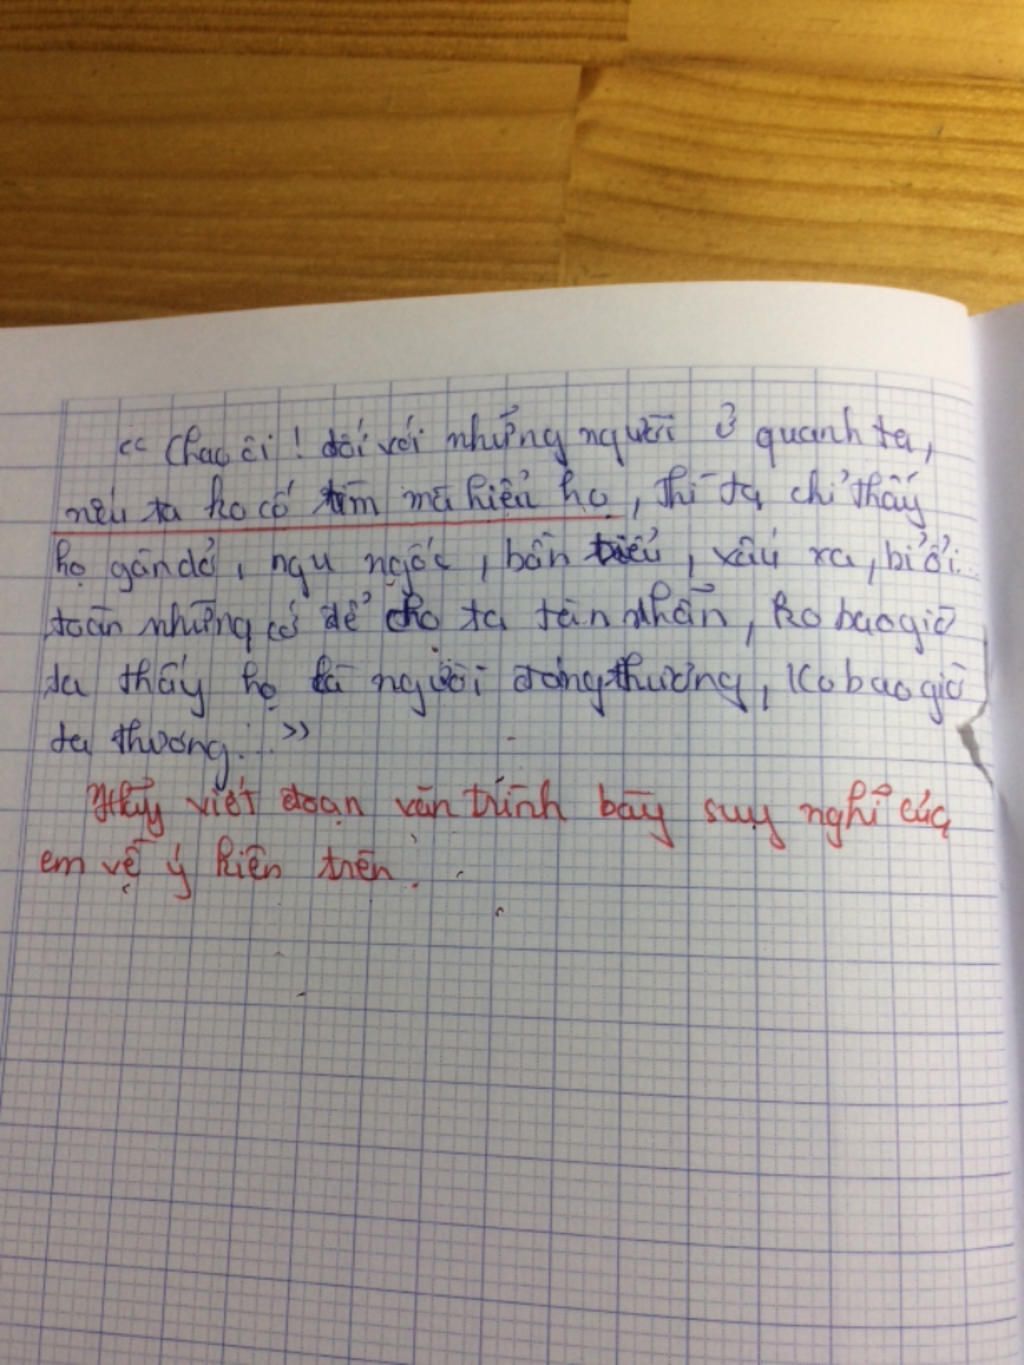 << Chao ôi ! đối với những người ở quanh ta,
nếu ta ko cố tìm mà hiểu họ, thì ta chỉ thấy
họ gàn dở, ngu ngốc, bần tiểu, xấu xa, bỉ ổi...
toàn những cớ để cho ta tàn nhẫn, ko bao giờ
ta thấy họ là người đáng thương, ko bao giờ
ta thương... >>
Hãy viết đoạn văn trình bày suy nghĩ của
em về ý kiến trên.